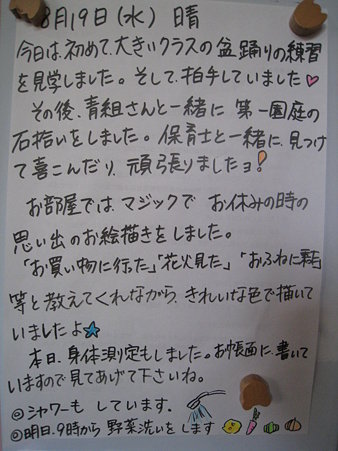 8月19日(水) 晴
今日は、初めて、大きいクラスの盆踊りの練習
を見学しました。そして、拍手していました♡
その後、青組さんと一緒に 第一園庭の
石拾いをしました。保育士と一緒に、見つけ
て喜こんだり、頑張りましたョ!
お部屋では、マジックで お休みの時の
思い出のお絵描きをしました。
「お買い物に行った」「花火見た」「おふねに乗った」
等と教えてくれながら、きれいな色で描いて
いましたよ☆
本日、身体測定もしました。お帳面に、書いて
いますので見てあげて下さいね。
◎シャワーも しています。
◎明日、9時から 野菜洗いをします